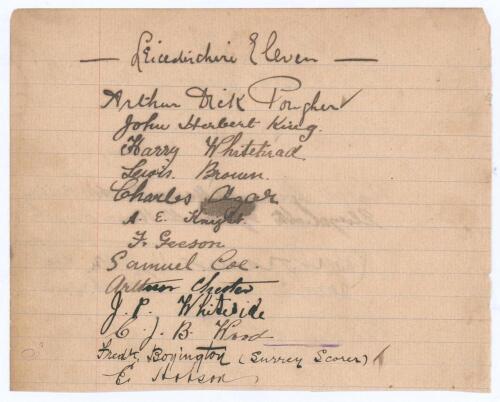 — Leicestershire Eleven —
Arthur Dick Pougher ✓
John Herbert King.
Harry Whitehead.
Lewis Brown.
Charles
A. E. Knight.
F. Geeson
Samuel Coe.
Arthur Chester
J. P. Whiteside
C. J. B. Wood
Fredk Boyington (Surrey Scorer)
E Hobson